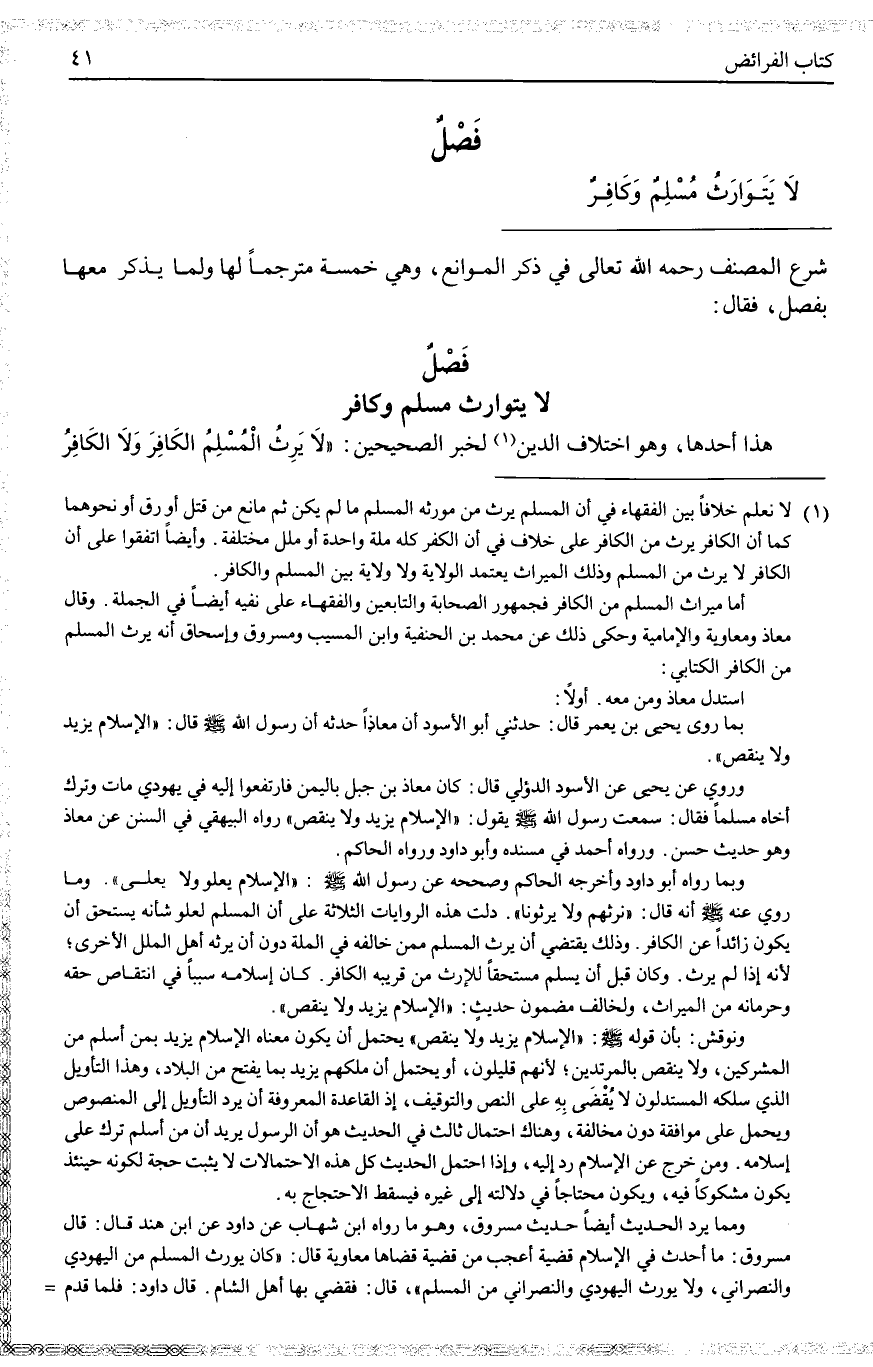 كتاب الفرائض
٤١
فَصْلٌ
لَا يَتَـوَارَثُ مُسْلِمٌ وَكَافِـرٌ
شرع المصنف رحمه الله تعالى في ذكر المـوانع، وهي خمسـة مترجمـاً لها ولمـا يـذكر معهـا
بفصل، فقال:
فَصْلٌ
لا يتوارث مسلم وكافر
هذا أحدها، وهو اختلاف الدين(١) لخبر الصحيحين: «لَا يَرِثُ الْمُسْلِمُ الكَافِرَ وَلَا الكَافِرُ
(١) لا نعلم خلافاً بين الفقهاء في أن المسلم يرث من مورثه المسلم ما لم يكن ثم مانع من قتل أو رق أو نحوهما
كما أن الكافر يرث من الكافر على خلاف في أن الكفر كله ملة واحدة أو ملل مختلفة. وأيضاً اتفقوا على أن
الكافر لا يرث من المسلم وذلك الميراث يعتمد الولاية ولا ولاية بين المسلم والكافر.
أما ميراث المسلم من الكافر فجمهور الصحابة والتابعين والفقهـاء على نفيه أيضـاً في الجملة. وقال
معاذ ومعاوية والإمامية وحكى ذلك عن محمد بن الحنفية وابن المسيب ومسروق وإسحاق أنه يرث المسلم
من الكافر الكتابي:
استدل معاذ ومن معه. أولاً:
بما روى يحيى بن يعمر قال: حدثني أبو الأسود أن معاذاً حدثه أن رسول الله ﷺ قال: «الإسلام يزيد
ولا ينقص».
وروي عن يحيى عن الأسود الدؤلي قال: كان معاذ بن جبل باليمن فارتفعوا إليه في يهودي مات وترك
أخاه مسلماً فقال: سمعت رسول الله ﷺ يقول: «الإسلام يزيد ولا ينقص» رواه البيهقي في السنن عن معاذ
وهو حديث حسن. ورواه أحمد في مسنده وأبو داود ورواه الحاكم.
وبما رواه أبو داود وأخرجه الحاكم وصححه عن رسول الله ﷺ : «الإسلام يعلو ولا يعلـى». ومـا
روي عنه ﷺ أنه قال: «نرثهم ولا يرثونا». دلت هذه الروايات الثلاثة على أن المسلم لعلو شأنه يستحق أن
يكون زائداً عن الكافر. وذلك يقتضي أن يرث المسلم ممن خالفه في الملة دون أن يرثه أهل الملل الأخرى؛
لأنه إذا لم يرث. وكان قبل أن يسلم مستحقاً للإرث من قريبه الكافر. كـان إسلامـه سبباً في انتقـاص حقه
وحرمانه من الميراث، ولخالف مضمون حديث: «الإسلام يزيد ولا ينقص».
ونوقش: بأن قوله ﷺ: «الإسلام يزيد ولا ينقص» يحتمل أن يكون معناه الإسلام يزيد بمن أسلم من
المشركين، ولا ينقص بالمرتدين؛ لأنهم قليلون، أو يحتمل أن ملكهم يزيد بما يفتح من البلاد، وهذا التأويل
الذي سلكه المستدلون لا يُقْضَى بِهِ على النص والتوقيف، إذ القاعدة المعروفة أن يرد التأويل إلى المنصوص
ويحمل على موافقة دون مخالفة، وهناك احتمال ثالث في الحديث هو أن الرسول يريد أن من أسلم ترك على
إسلامه. ومن خرج عن الإسلام رد إليه، وإذا احتمل الحديث كل هذه الاحتمالات لا يثبت حجة لكونه حينئذ
يكون مشكوكاً فيه، ويكون محتاجاً في دلالته إلى غيره فيسقط الاحتجاج به.
ومما يرد الحـديث أيضـاً حـديث مسروق، وهـو ما رواه ابن شهـاب عن داود عن ابن هند قـال: قال
مسروق: ما أحدث في الإسلام قضية أعجب من قضية قضاها معاوية قال: «كان يورث المسلم من اليهودي
والنصراني، ولا يورث اليهودي والنصراني من المسلم»، قال: فقضي بها أهل الشام. قال داود: فلما قدم =